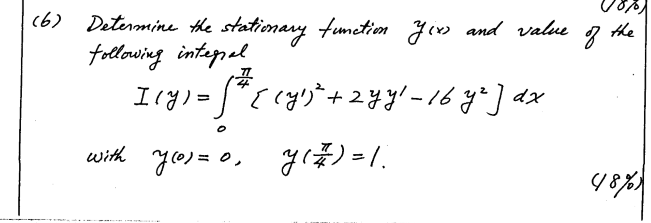 (8%)
(b) Determine the stationary function y(x) and value of the
following integral
I(y) = ∫₀^{π/4} [ (y')² + 2yy' - 16y² ] dx
with y(0) = 0, y(π/4) = 1.
(8%)